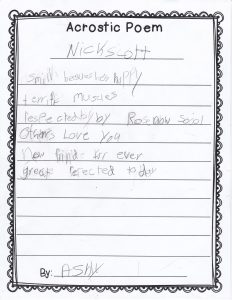 Acrostic Poem
Nick Scott
smill happy
terrific Muscles
respected by by Rosemow Scool
Others Love You
New frind for ever
great today
By: ASHY